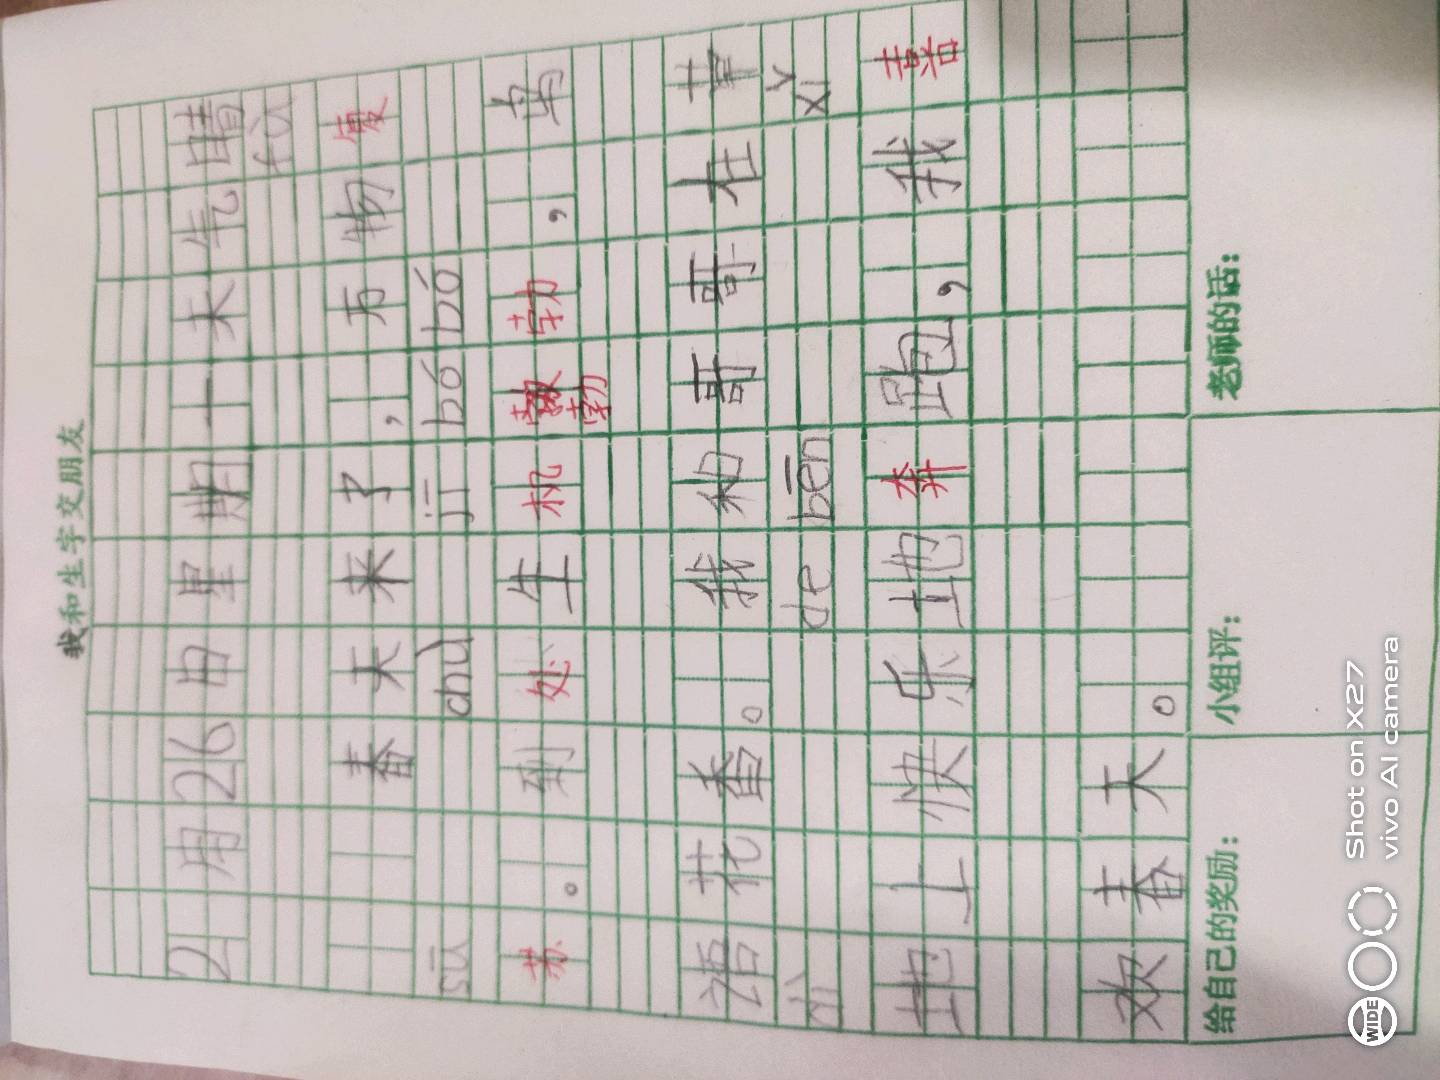 我和生字交朋友
2月26日星期一天气晴
fù
春天来了，万物复
sū chù jī bó bó
苏。到处生机勃勃，鸟
语花香。我和哥哥在草
dì de bēn xǐ
地上快乐地奔跑，我喜
欢春天。
给自己的奖励： 小组评： 老师的话：
Shot on X27
vivo AI camera
WIDE